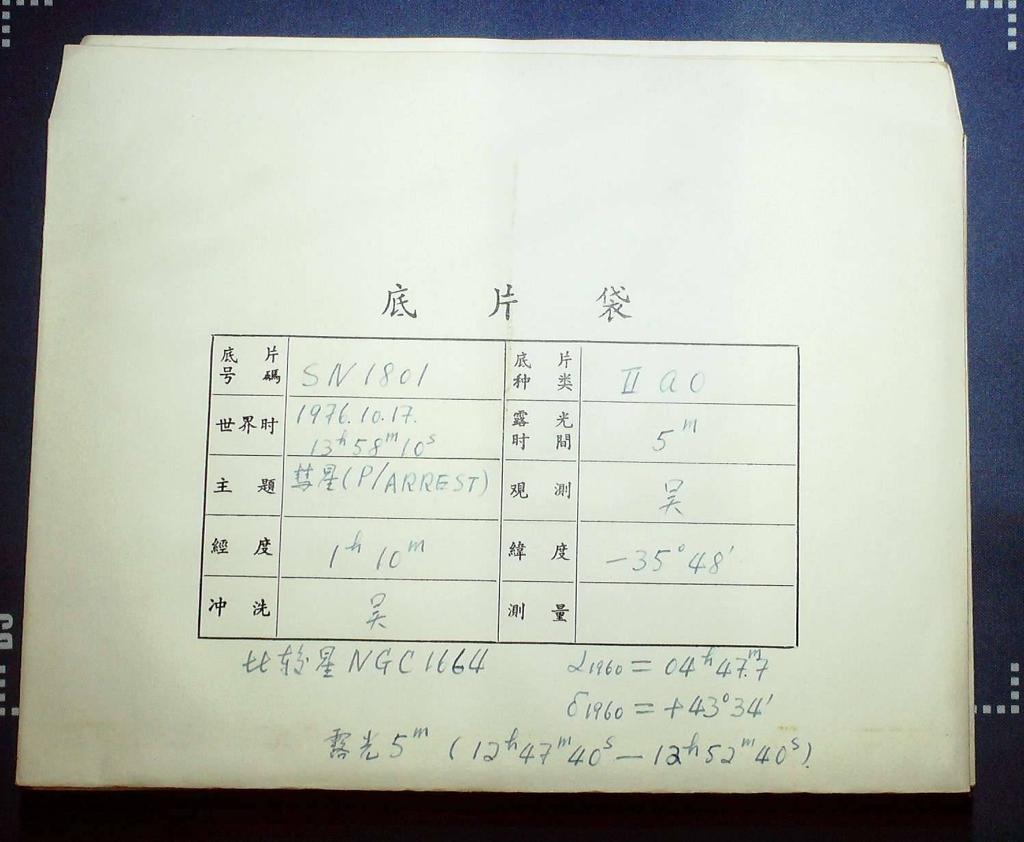 底片袋
底片号碼 SN1801 底片种类 IIaO
世界时 1976.10.17. 13ʰ58ᵐ10ˢ 露光时間 5ᵐ
主題 彗星(P/ARREST) 观測 吴
經度 1ʰ 10ᵐ 緯度 -35°48′
冲洗 吴 測量
比较星 NGC1664 α1960 = 04ʰ47ᵐ.7
δ1960 = +43°34′
露光 5ᵐ (12ʰ47ᵐ40ˢ — 12ʰ52ᵐ40ˢ).